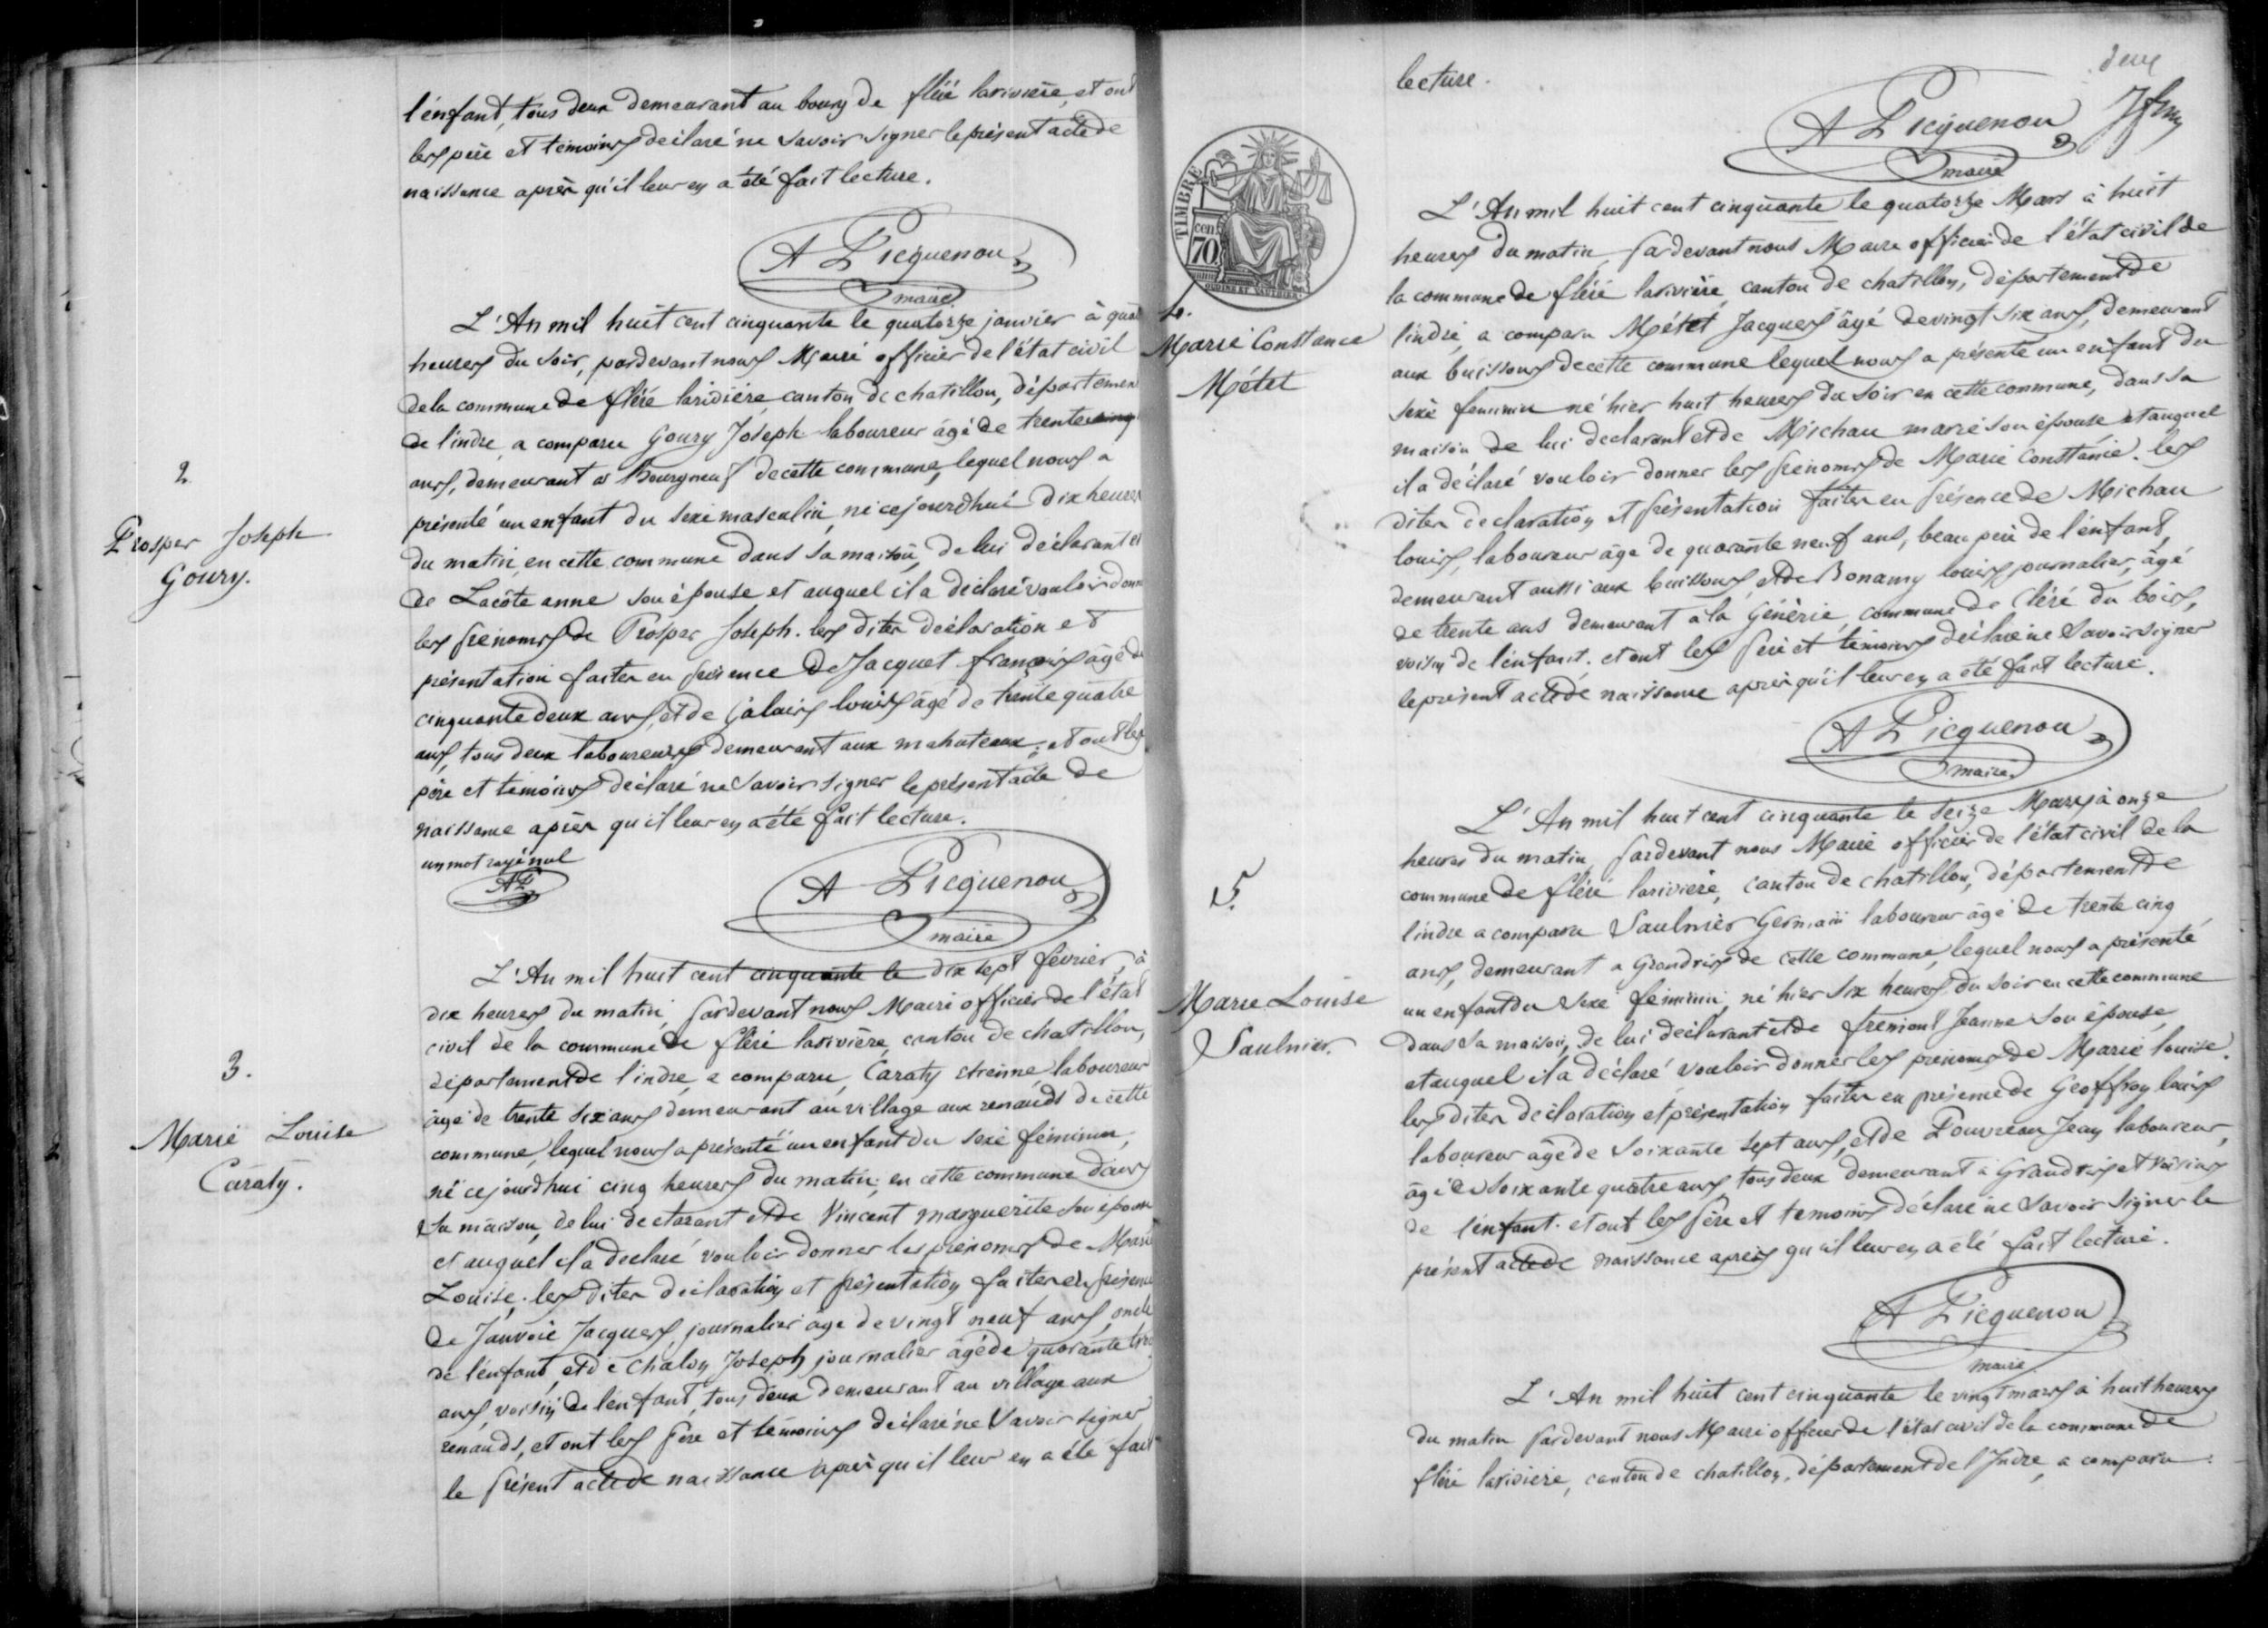 l'enfant, tous deux demeurant au bourg de fléré larivière, et ont
les père et témoins déclaré ne savoir signer le présent acte de
naissance après qu'il leur en a été fait lecture.
A Picquenou
maire
2.
Prosper Joseph
Goury.
L'An mil huit cent cinquante le quatorze janvier à
heures du soir, pardevant nous Maire officier de l'état civil
de la commune de fléré larivière canton de chatillon, département
de l'indre, a comparu Goury Joseph laboureur âgé de trente
ans, demeurant à Bourgneuf de cette commune, lequel nous a
présenté un enfant du sexe masculin, né cejourdhui dix heures
du matin, en cette commune dans sa maison, de lui déclarant et
de Lacôte anne son épouse et auquel il a déclaré vouloir donner
les prénoms de Prosper Joseph. les dites déclaration et
présentation faites en présence de Jacquet françois âgé de
cinquante deux ans, et de Jalais louis âgé de trente quatre
ans, tous deux laboureurs demeurant aux mahuteaux; et ont les
père et témoins déclaré ne savoir signer le présent acte de
naissance après qu'il leur en a été fait lecture.
un mot rayé nul
AP
A Picquenou
maire
3.
Marie Louise
Caraty.
L'An mil huit cent cinquante le dix sept février, à
dix heures du matin, pardevant nous Maire officier de l'état
civil de la commune de fléré larivière, canton de chatillon,
département de l'indre, a comparu, Caraty etienne laboureur
âgé de trente six ans demeurant au village aux renauds de cette
commune, lequel nous a présenté un enfant du sexe féminin,
né cejourdhui cinq heures du matin, en cette commune dans
sa maison, de lui declarant et de Vincent marguerite son épouse
et auquel il a declaré vouloir donner les prénoms de Marie
Louise. les dites déclaration et présentation faites en présence
de Janvoie Jacques, journalier âgé de vingt neuf ans, oncle
de l'enfant, et de Chalon Joseph journalier âgé de quarante
ans, voisin de l'enfant, tous deux demeurant au village aux
renauds, et ont les père et témoins déclaré ne savoir signer
le présent acte de naissance après qu'il leur en a été fait
deux
lecture.
A Picquenou
maire
TIMBRE
70 cen.
OUDINE ET GAUTHIER
4.
Marie Constance
Métet
L'An mil huit cent cinquante le quatorze Mars à huit
heures du matin, pardevant nous Maire officier de l'état civil de
la commune de fléré larivière, canton de chatillon, département de
lindre, a comparu Métet Jacques âgé de vingt six ans, demeurant
aux buissons de cette commune lequel nous a présenté un enfant du
sexe feminin né hier huit heures du soir en cette commune, dans sa
maison de lui declarant et de Michau marie son épouse, et auquel
il a déclaré vouloir donner les prénoms de Marie Constance. les
dites declaration et présentation faites en présence de Michau
louis, laboureur âgé de quarante neuf ans, beau père de l'enfant,
demeurant aussi aux buissons, et de Bonamy louis journalier, âgé
de trente ans demeurant à la Génèrie, commune de Cléré du bois,
voisin de l'enfant. et ont les père et témoins déclaré ne savoir signer
le présent acte de naissance après qu'il leur en a été fait lecture.
A Picquenou
maire
5.
Marie Louise
Saulnier.
L'An mil huit cent cinquante le seize Mars à onze
heures du matin, pardevant nous Maire officier de l'état civil de la
commune de fléré larivière, canton de chatillon, département de
lindre a comparu Saulnier Germain laboureur âgé de trente cinq
ans, demeurant a Grandris de cette commune, lequel nous a présenté
un enfant du sexe féminin, né hier six heures du soir en cette commune
dans sa maison, de lui déclarant et de fremont Jeanne son épouse,
et auquel il a déclaré vouloir donner les prénoms de Marie louise.
les dites déclaration et présentation faites en présence de Geoffroy louis
laboureur âgé de soixante sept ans, et de Pouvreau Jean laboureur,
âgé de soixante quatre ans, tous deux demeurant à Grandris et voisins
de l'enfant. et ont les père et temoins déclaré ne savoir signer le
présent acte de naissance après qu'il leur en a été fait lecture.
A Picquenou
maire
L'An mil huit cent cinquante le vingt mars à huit heures
du matin pardevant nous Maire officier de l'état civil de la commune de
fléré larivière, canton de chatillon, département de l'Indre, a comparu